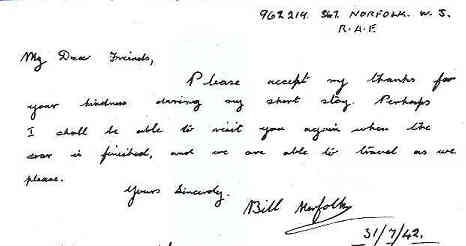 962214. Sgt. NORFOLK. W. J.
R.A.F
My Dear Friends,
Please accept my thanks for
your kindness during my short stay. Perhaps
I shall be able to visit you again when the
war is finished, and we are able to travel as we
please.
Yours Sincerely.
Bill Norfolk
31/7/42.